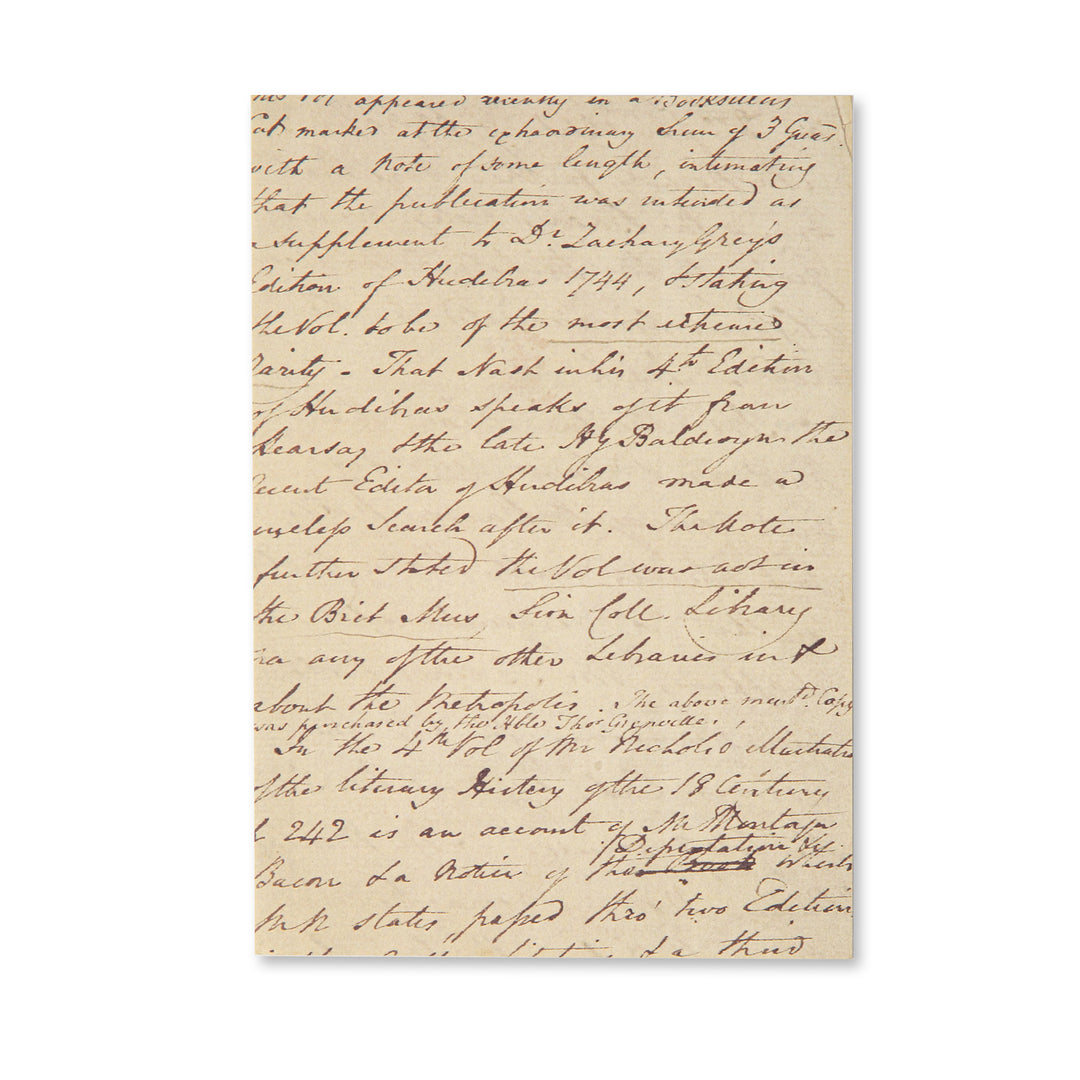 this Vol appeared recently in a Booksellers
Cat marked at the extraordinary Sum of 3 Guas.
with a Note of some length, intimating
that the publication was intended as
a supplement to Dr. Zachary Grey's
Edition of Hudibras 1744, & stating
the Vol. to be of the most extreme
Rarity - That Nash in his 4th Edition
of Hudibras speaks of it from
hearsay & the late Hy Baldwyn the
recent Editor of Hudibras made a
useless Search after it. The Note
further stated the Vol was not in
the Brit Mus Sion Coll. Library
nor any of the other Libraries in &
about the Metropolis. The above mentd. Copy
was purchased by the Hble Thos Grenville.
In the 4th Vol of Mr Nichols Illustratio
of the literary History of the 18 Century
242 is an account of Mr Montagu
Dissertation &c.
Bacon & a Notice of this which
Mr N states, passed thro' two Edition
& a third